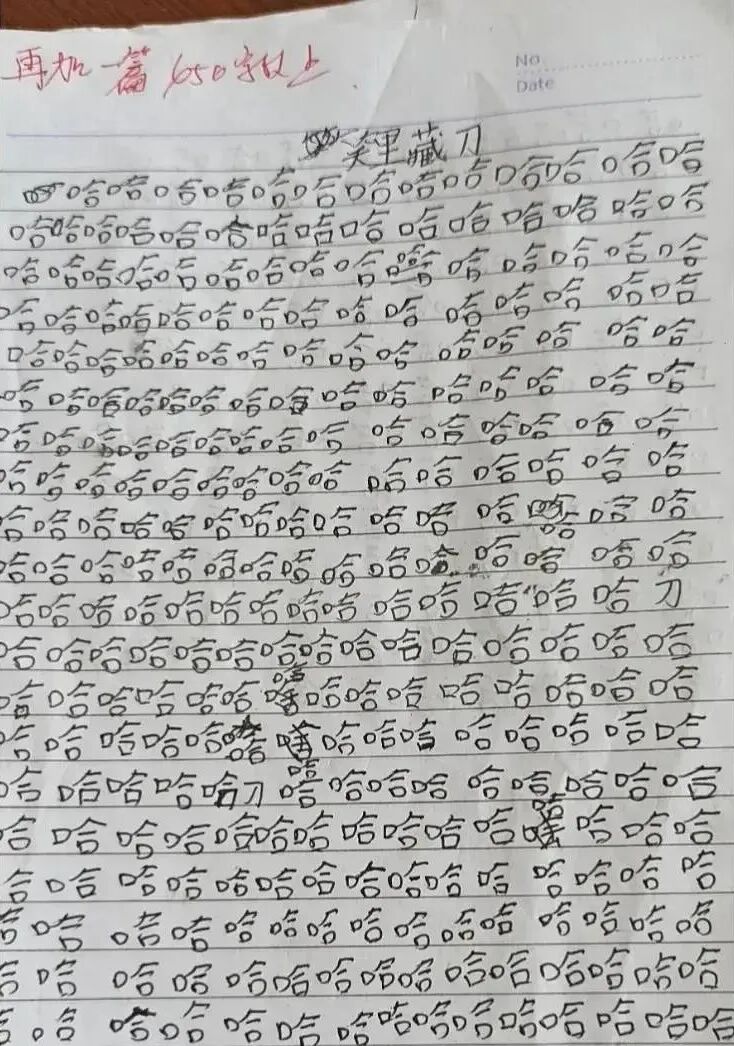 再加一篇 650字以上
No
Date
笑里藏刀
哈哈哈哈哈哈哈哈哈哈哈哈哈
哈哈哈哈哈哈哈哈哈哈哈哈哈哈哈
哈哈哈哈哈哈哈哈哈哈哈哈哈哈哈
哈哈哈哈哈哈哈哈哈哈哈哈哈哈哈
哈哈哈哈哈哈哈哈哈哈哈哈哈哈哈
哈哈哈哈哈哈哈哈哈哈哈哈哈哈哈
哈哈哈哈哈哈哈哈哈哈哈哈哈哈哈
哈哈哈哈哈哈哈哈哈哈哈哈哈哈哈
哈哈哈哈哈哈哈哈哈哈哈哈哈哈哈
哈哈哈哈哈哈哈哈哈哈哈哈哈哈哈
哈哈哈哈哈哈哈哈哈哈哈哈哈哈刀
哈哈哈哈哈哈哈哈哈哈哈哈哈哈哈
哈哈哈哈哈哈哈哈哈哈哈哈哈哈哈
哈哈哈哈哈哈哈哈哈哈哈哈哈哈哈
哈哈哈哈哈刀哈哈哈哈哈哈哈哈哈
哈哈哈哈哈哈哈哈哈哈哈哈哈哈哈
哈哈哈哈哈哈哈哈哈哈哈哈哈哈哈
哈哈哈哈哈哈哈哈哈哈哈哈哈哈哈
哈哈哈哈哈哈哈哈哈哈哈哈哈哈哈
哈哈哈哈哈哈哈哈哈哈哈哈哈哈哈